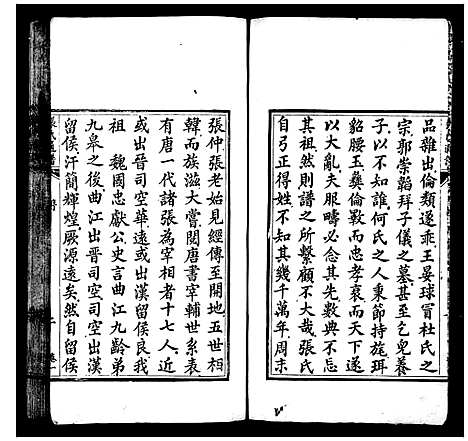 品雜出倫類遂乖王晏球冒杜氏之
宗郭崇韜拜子儀之墓甚至皃養
子以不知誰何氏之人秉節持旄珥
貂腰玉彝倫斁而忠孝衰而天下遂
以大亂夫服疇必念其先數典不忘
其祖然則譜之所繫顧不大哉張氏
自弓正得姓不知其幾千萬年周末
張仲張老始見經傳至開地五世相
韓而族滋大嘗閱唐書宰輔世系表
有唐一代諸張為宰相者十七人近
或出晉司空華遠或出漢留侯良我
祖 魏國忠獻公史言曲江九齡弟
九皋之後曲江出晉司空司空出
留侯汗簡輝煌厥源遠矣然自留侯
張氏通譜
序
二
卷一